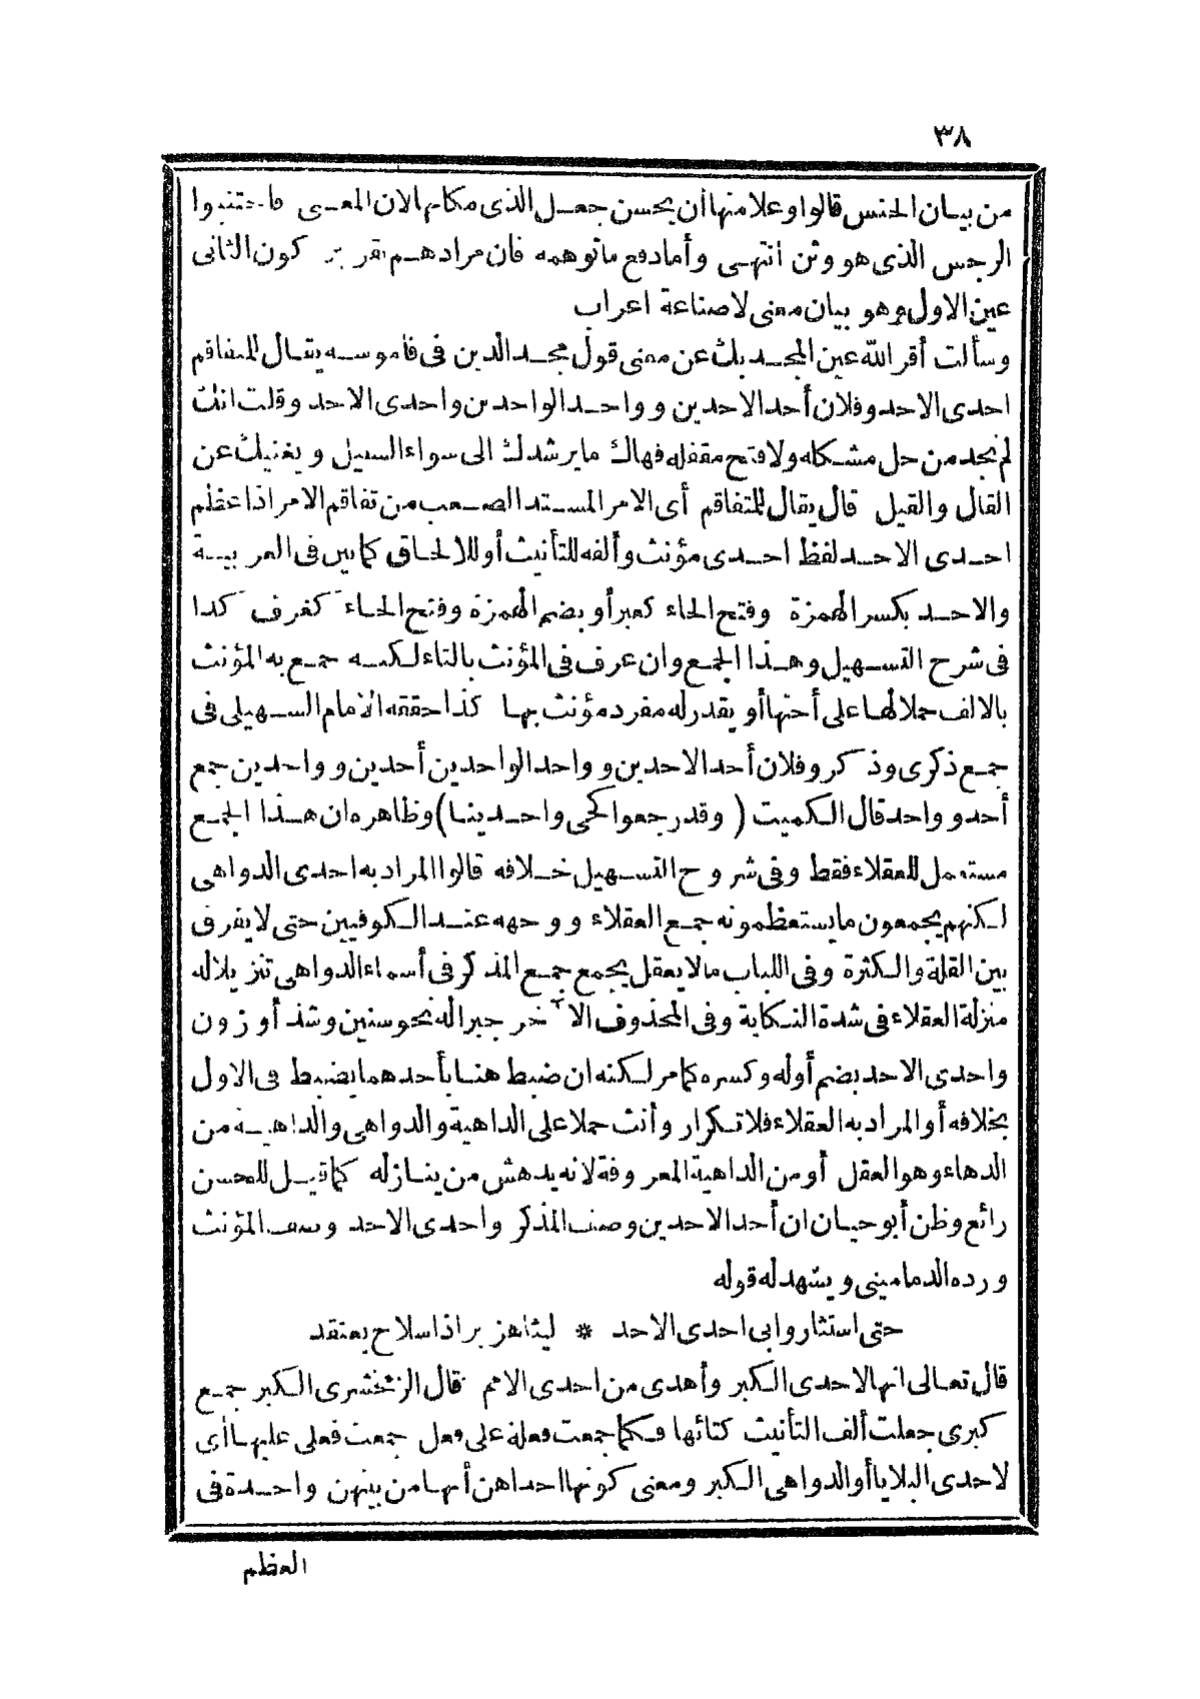 ٣٨
من بيان الجنس قالوا وعلامتها أن يحسن جعل الذى مكانها لان المعنى فاجتنبوا
الرجس الذى هو وثن انتهى وأما دفع ماتوهمه فان مرادهم تقرير كون الثانى
عين الاول وهو بيان معنى لا صناعة اعراب
وسألت أقر الله عين المجد بك عن معنى قول مجد الدين فى قاموسه يقال للمتفاقم
احدى الاحد وفلان أحد الاحدين و واحد الواحدين واحدى الاحد وقلت انك
لم تجد من حل مشكله ولا فتح مقفله فهاك ما يرشدك الى سواء السبيل و يغنيك عن
القال والقيل قال يقال للمتفاقم أى الامر المشتد الصعب من تفاقم الامر اذا عظم
احدى الاحد لفظ احدى مؤنث وألفه للتأنيث أو للالحاق كما بين فى العربية
والاحد بكسر الهمزة وفتح الحاء كعبر أو بضم الهمزة وفتح الحاء كغرف كذا
فى شرح التسهيل وهذا الجمع وان عرف فى المؤنث بالتاء لكنه جمع به المؤنث
بالالف حملا لها على أختها أو يقدر له مفرد مؤنث بها كذا حققه الامام السهيلى فى
جمع ذكرى وذكر وفلان أحد الاحدين و واحد الواحدين أحدين و واحدين جمع
أحد و واحد قال الكميت ( وقد رجعوا كحى واحدينا ) وظاهره ان هذا الجمع
مستعمل للعقلاء فقط وفى شروح التسهيل خلافه قالوا المراد به احدى الدواهى
لكنهم يجمعون ما يستعظمونه جمع العقلاء و وجهه عند الكوفيين حتى لا يفرق
بين القلة والكثرة وفى اللباب مالا يعقل يجمع جمع المذكر فى أسماء الدواهى تنزيلا له
منزلة العقلاء فى شدة النكاية وفى المحذوف الآخر جبرا له نحو سنين وشذ أو زون
واحدى الاحد بضم أوله وكسره كما مر لكنه ان ضبط هنا بأحدهما يضبط فى الاول
بخلافه أو المراد به العقلاء فلا تكرار وأنث حملا على الداهية والدواهى والداهية من
الدهاء وهو العقل أو من الداهية المعروفة لانه يدهش من ينازله كما قيل للمحسن
رائع وظن أبو حيان ان أحد الاحدين وصف المذكر واحدى الاحد وصف المؤنث
ورده الدمامينى ويشهد له قوله
حتى استثاروا بى احدى الاحد * ليثا هزبرا ذا سلاح يعتقد
قال تعالى انها لاحدى الكبر وأهدى من احدى الامم قال الزمخشرى الكبر جمع
كبرى جعلت ألف التأنيث كتائها فكما جمعت فعلة على فعل جمعت فعلى عليها أى
لاحدى البلايا أو الدواهى الكبر ومعنى كونها احداهن أنها من بينهن واحدة فى
العظم